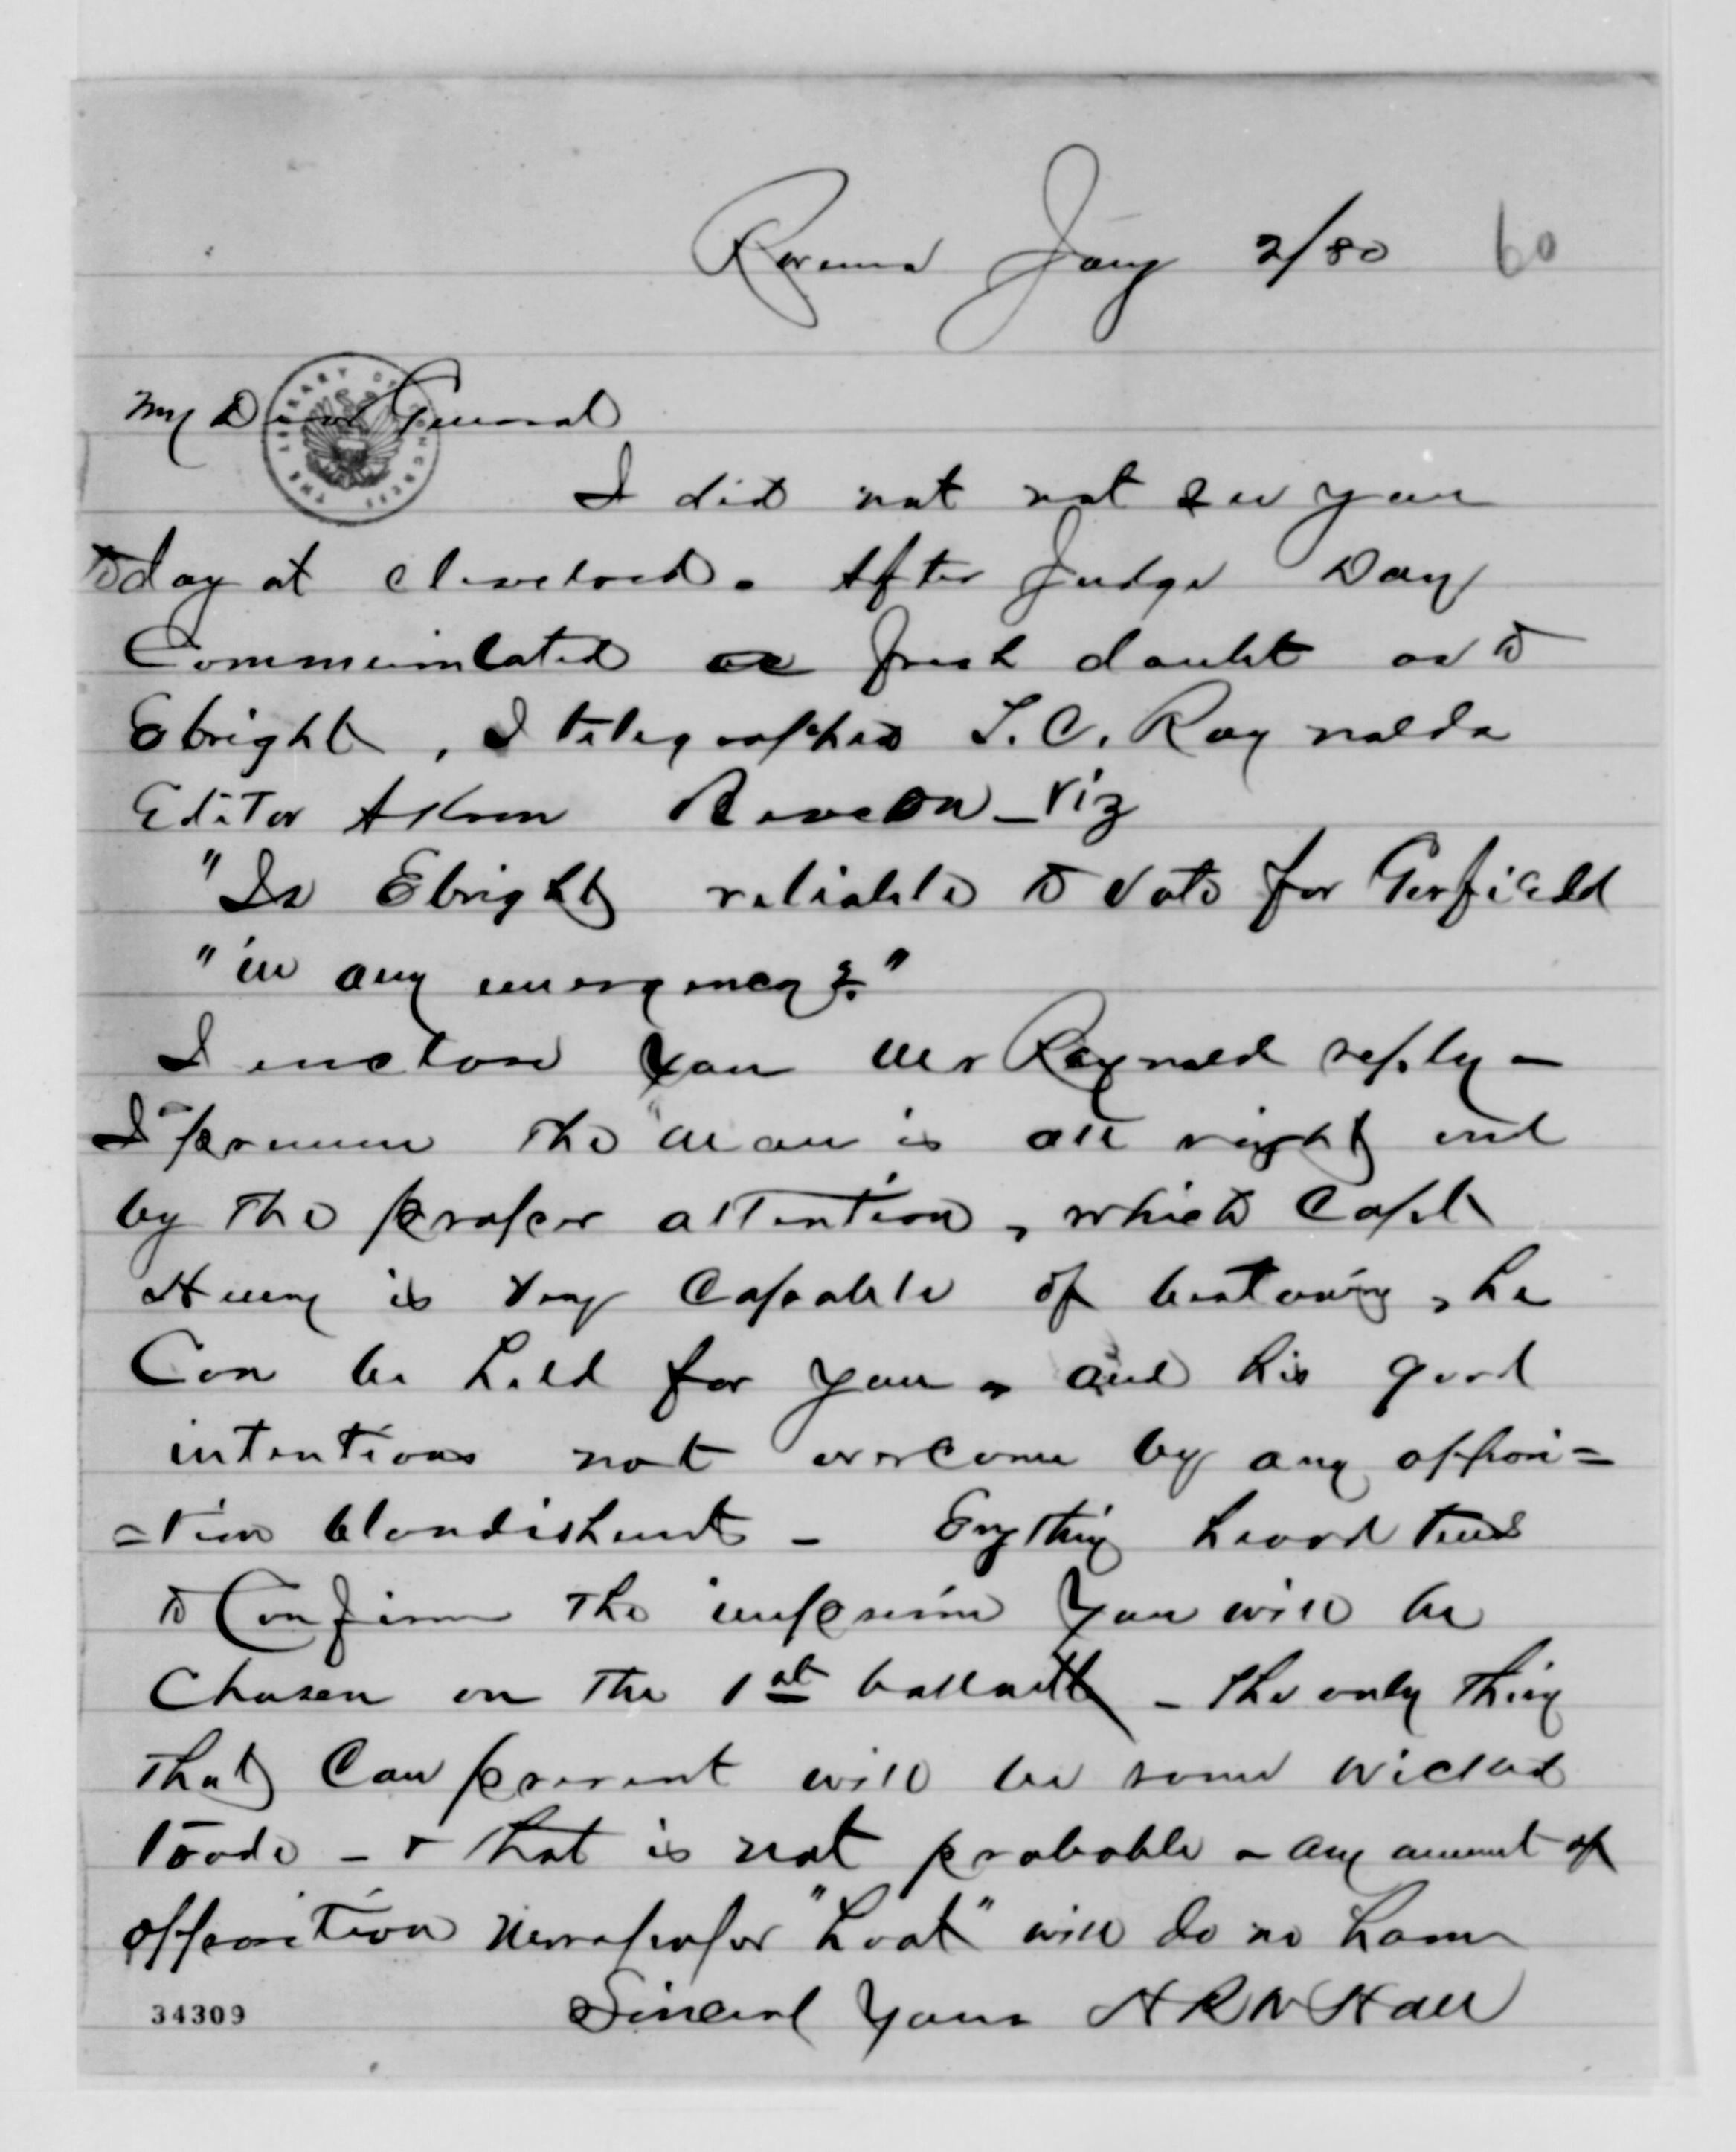 Ravenna Jany 2/80 60
My Dear General
I did not not see you
today at Cleveland. After Judge Day
Communicated a fresh doubt as to
Ebright, I telegraphed T.C. Raynolds
Editor Akron Beacon - viz
"Is Ebright reliable to vote for Garfield
"in any emergency?"
I enclose you Mr Raynold reply -
I presume the man is all right and
by the proper attention, which Capt
Henry is very Capable of bestowing, he
Can be held for you, and his good
intentions not overcome by any opposi=
=tion blandishments - Evything heard tends
to Confirm the impression you will be
Chosen on the 1st ballott - the only thing
that Can prevent will be some wicked
trade - & that is not probable - any amount of
opposition newspaper "hoot" will do no harm
34309 Sincerel Yours H R W Hall
THE LIBRARY OF CONGRESS